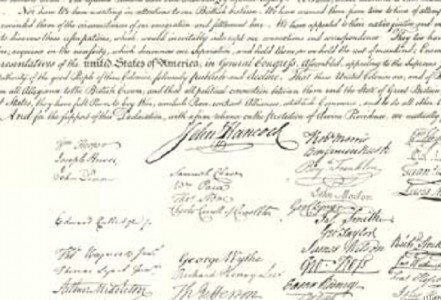 Nor have We been wanting in attentions to our British brethren. We have warned them from time to time of attempts
them of the circumstances of our emigration and settlement here. We have appealed to their native justice and
to disavow these usurpations, which would inevitably interrupt our connections and correspondence. They too have
acquiesce in the necessity, which denounces our Separation, and hold them, as we hold the rest of mankind, Enemies
resentatives of the united States of America, in General Congress, Assembled, appealing to the Supreme
uthority of the good People of these Colonies, solemnly publish and declare, That these United Colonies are, and of
all Allegiance to the British Crown, and that all political connection between them and the State of Great Britain
States, they have full Power to levy War, conclude Peace, contract Alliances, establish Commerce, and to do all other
And for the support of this Declaration, with a firm reliance on the protection of divine Providence, we mutually
John Hancock
Wm Hooper
Joseph Hewes
John Penn
Edward Rutledge
Thos Heyward Junr
Thomas Lynch Junr
Arthur Middleton
Samuel Chase
Wm Paca
Thos Stone
Charles Carroll of Carrollton
George Wythe
Richard Henry Lee
Th Jefferson
Robt Morris
Benjamin Rush
Benj Franklin
John Morton
Geo Clymer
Jas Smith
Geo Taylor
James Wilson
Geo Ross
Caesar Rodney